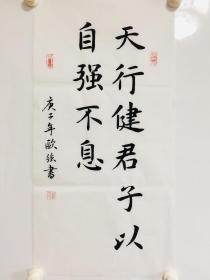 天行健君子以
自强不息
庚子年歐强書